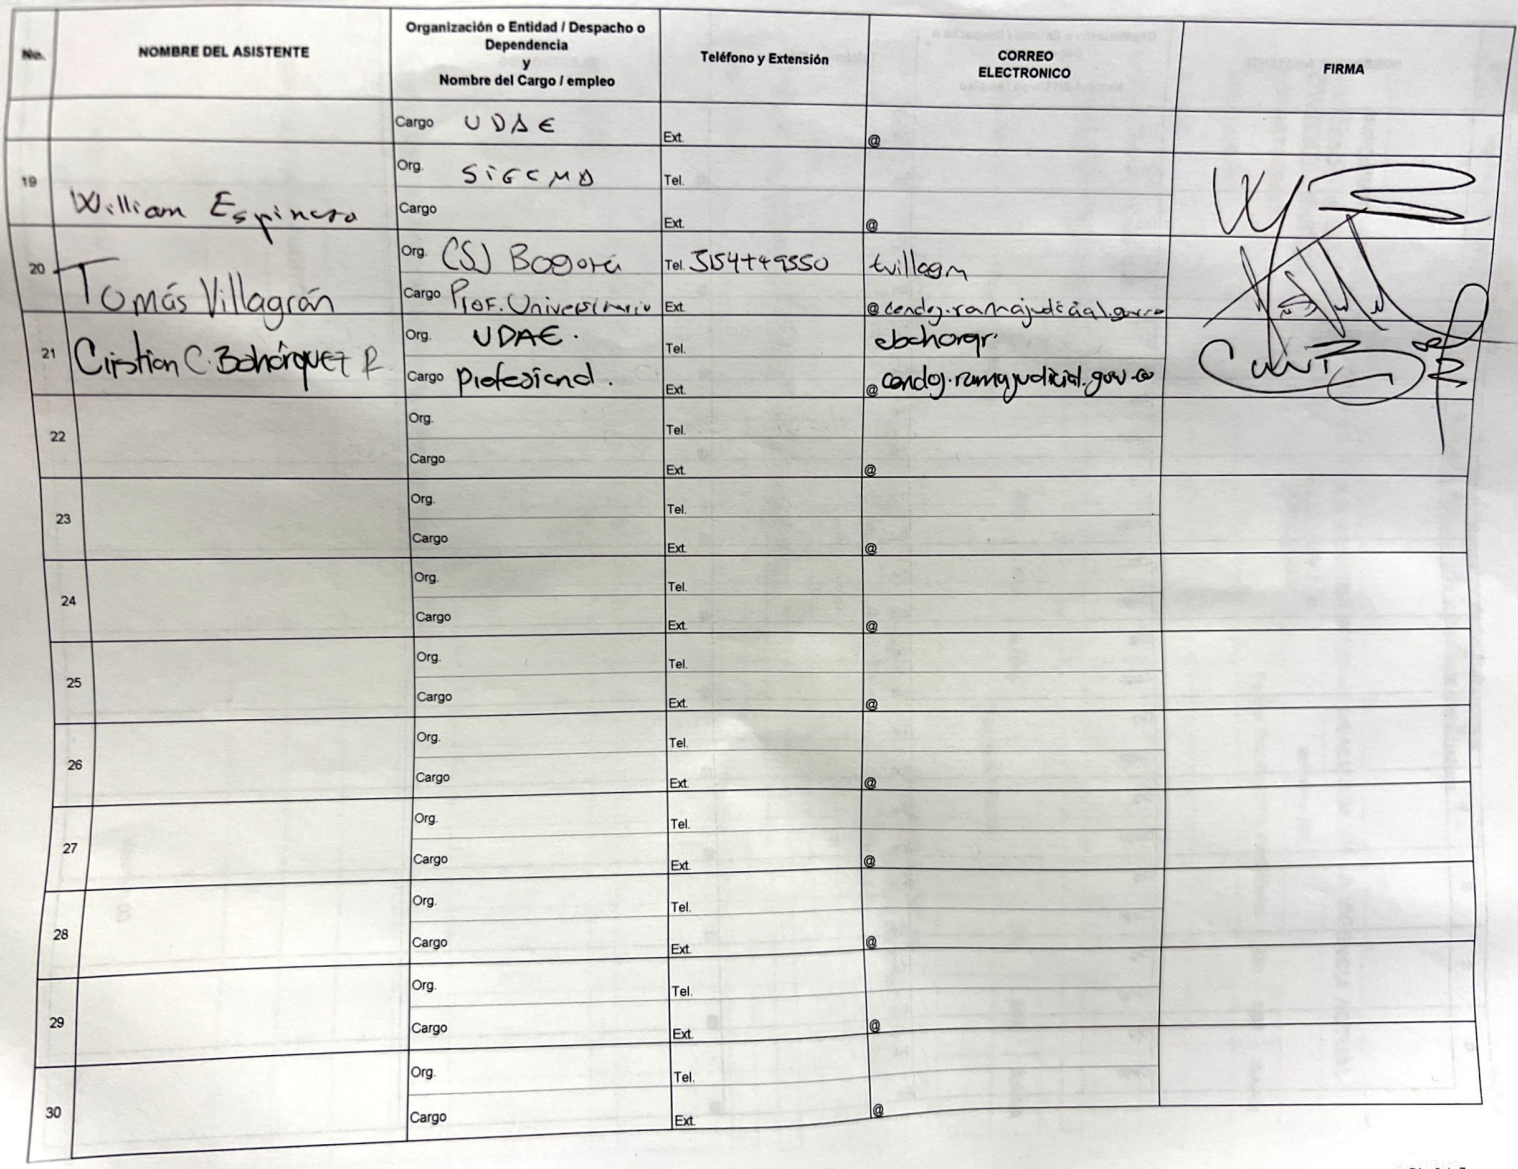 No. NOMBRE DEL ASISTENTE Organización o Entidad / Despacho o Dependencia y Nombre del Cargo / empleo Teléfono y Extensión CORREO ELECTRONICO FIRMA
Cargo UDAE Ext. @
19 William Espinosa Org. SIGCMA Tel.
Cargo Ext. @
20 Tomás Villagrán Org. CSJ Bogotá Tel. tvillagm
Cargo Prof. Universitario Ext. @cendoj.ramajudicial.gov.co
21 Cristian C. Bohórquez R Org. UDAE. Tel. cbohorqr
Cargo profesional. Ext. @cendoj.ramajudicial.gov.co
22 Org. Tel.
Cargo Ext. @
23 Org. Tel.
Cargo Ext. @
24 Org. Tel.
Cargo Ext. @
25 Org. Tel.
Cargo Ext. @
26 Org. Tel.
Cargo Ext. @
27 Org. Tel.
Cargo Ext. @
28 Org. Tel.
Cargo Ext. @
29 Org. Tel.
Cargo Ext. @
30 Org. Tel.
Cargo Ext. @